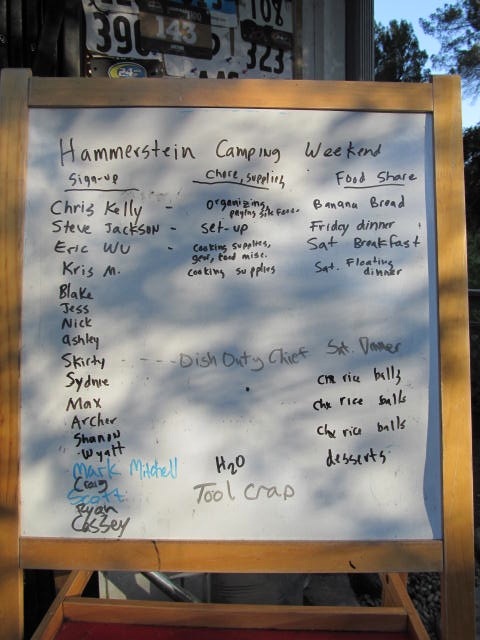 390
143
108
323
24
Hammerstein Camping Weekend
Sign-up Chore, supplies Food Share
Chris Kelly - organizing, paying site fees. Banana Bread
Steve Jackson - set-up Friday dinner
Eric Wu - cooking supplies, gear, food misc. Sat Breakfast
Kris M. cooking supplies Sat. Floating dinner
Blake
Jess
Nick
ashley
Skirty ---- Dish Duty Chief Sat. Dinner
Sydnie chx rice balls
Max chx rice balls
Archer
Shanon chx rice balls
Wyatt
Mark Mitchell H2O desserts
Craig
Scott Tool crap
Ryan
Cassey